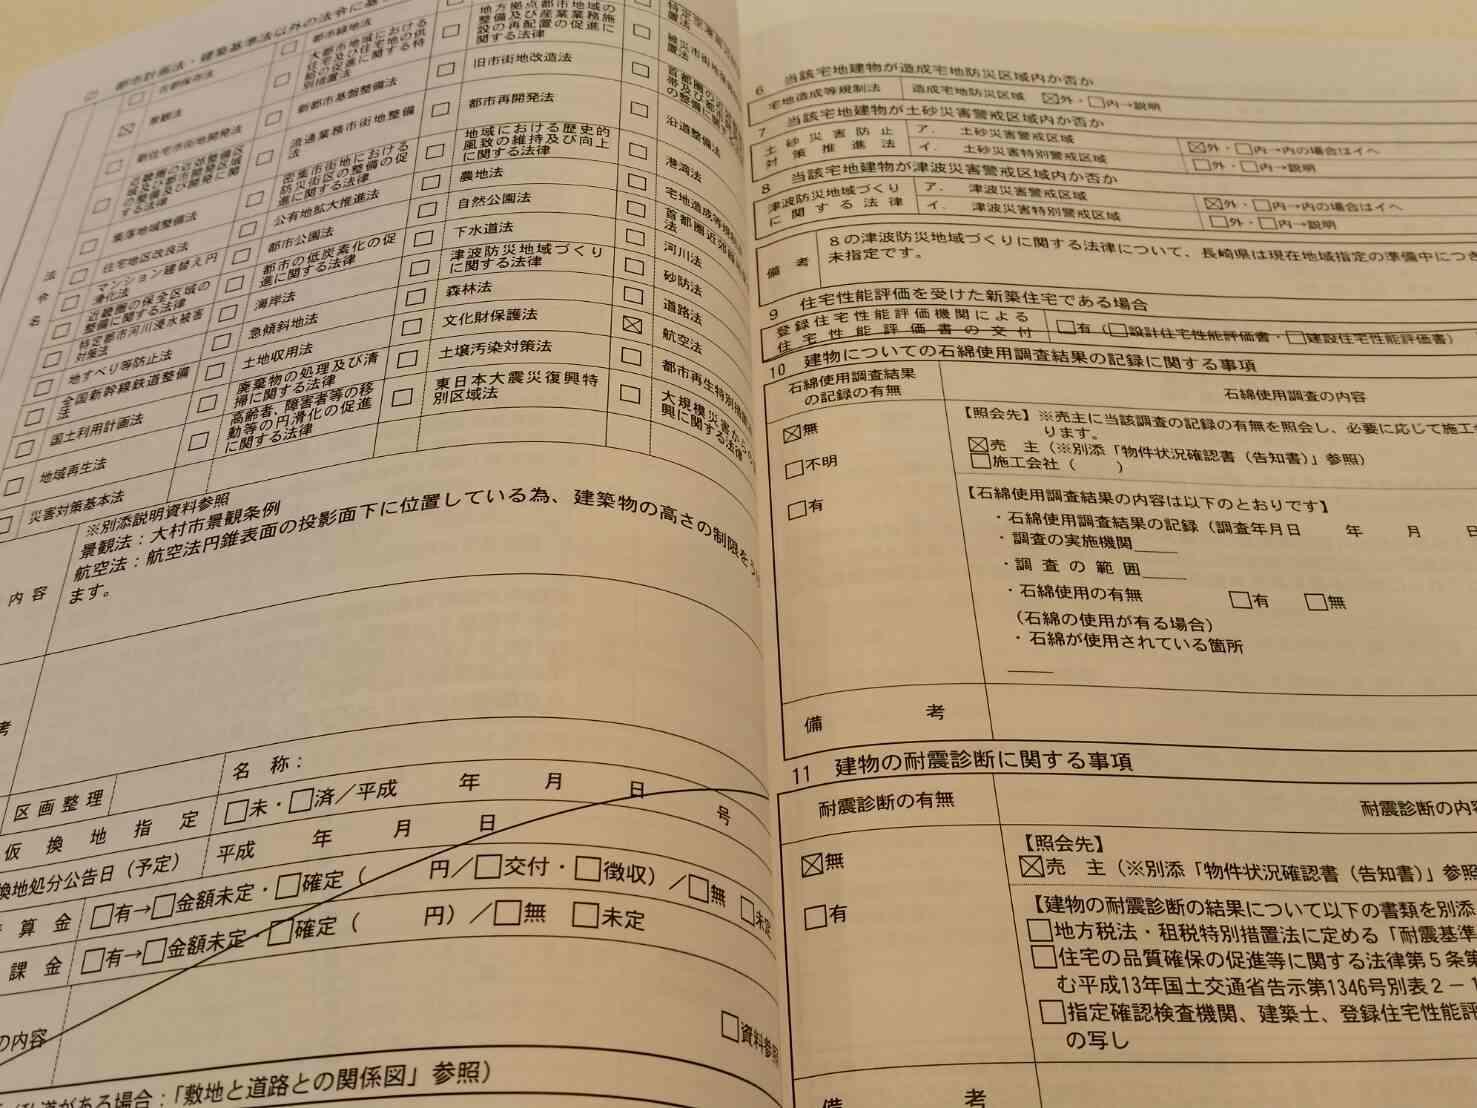 ② 都市計画法・建築基準法以外の法令に基
古都保存法
都市緑地法
地方拠点都市地域の整備及び産業業務施設の再配置の促進に関する法律
☒ 景観法
□ 大都市地域における住宅及び住宅地の供給の促進に関する特別措置法
□ 旧市街地改造法
□ 新住宅市街地開発法
□ 新都市基盤整備法
□ 都市再開発法
□ 沿道整備法
□ 流通業務市街地整備法
□ 地域における歴史的風致の維持及び向上に関する法律
□ 港湾法
□ 集落地域整備法
□ 密集市街地における防災街区の整備の促進に関する法律
□ 農地法
□ 宅地造成等規制法
□ 住宅地区改良法
□ 公有地拡大推進法
□ 自然公園法
□ マンション建替え円滑化法
□ 都市公園法
□ 下水道法
□ 河川法
□ 近畿圏の保全区域の整備に関する法律
□ 都市の低炭素化の促進に関する法律
□ 津波防災地域づくりに関する法律
□ 砂防法
□ 特定都市河川浸水被害対策法
□ 海岸法
□ 森林法
□ 道路法
□ 地すべり等防止法
□ 急傾斜地法
□ 文化財保護法
☒ 航空法
□ 全国新幹線鉄道整備法
□ 土地収用法
□ 土壌汚染対策法
□ 都市再生特別措置
□ 国土利用計画法
□ 廃棄物の処理及び清掃に関する法律
□ 東日本大震災復興特別区域法
□ 大規模災害からの復興に関する法律
□ 地域再生法
□ 高齢者、障害者等の移動等の円滑化の促進に関する法律
□ 災害対策基本法
法令名
※別添説明資料参照
景観法:大村市景観条例
航空法:航空法円錐表面の投影面下に位置している為、建築物の高さの制限を
ます。
内容
考
区画整理
名 称:
仮換地指定 □未・□済/平成 年 月 日 号
換地処分公告日(予定) 平成 年 月 日
算金 □有→□金額未定・□確定( 円/□交付・□徴収)/□無 □未定
課金 □有→□金額未定・□確定( 円)/□無 □未定
の内容
□資料参照
道がある場合:「敷地と道路との関係図」参照)
6 当該宅地建物が造成宅地防災区域内か否か
宅地造成等規制法 造成宅地防災区域 ☒外・□内→説明
7 当該宅地建物が土砂災害警戒区域内か否か
土砂災害防止対策推進法
ア. 土砂災害警戒区域 ☒外・□内→内の場合はイへ
イ. 土砂災害特別警戒区域 □外・□内→説明
8 当該宅地建物が津波災害警戒区域内か否か
津波防災地域づくりに関する法律
ア. 津波災害警戒区域 ☒外・□内→内の場合はイへ
イ. 津波災害特別警戒区域 □外・□内→説明
備考
8の津波防災地域づくりに関する法律について、長崎県は現在地域指定の準備中につき
未指定です。
9 住宅性能評価を受けた新築住宅である場合
登録住宅性能評価機関による
住宅性能評価書の交付
□有(□設計住宅性能評価書・□建設住宅性能評価書)
10 建物についての石綿使用調査結果の記録に関する事項
石綿使用調査結果
の記録の有無
石綿使用調査の内容
☒無
□不明
□有
【照会先】※売主に当該調査の記録の有無を照会し、必要に応じて施工
ります。
☒売 主(※別添「物件状況確認書(告知書)」参照)
□施工会社( )
【石綿使用調査結果の内容は以下のとおりです】
・石綿使用調査結果の記録(調査年月日 年 月 日
・調査の実施機関
・調査の範囲
・石綿使用の有無 □有 □無
(石綿の使用が有る場合)
・石綿が使用されている箇所
備 考
11 建物の耐震診断に関する事項
耐震診断の有無
耐震診断の内容
☒無
□有
【照会先】
☒売 主(※別添「物件状況確認書(告知書)」参照
【建物の耐震診断の結果について以下の書類を別添
□地方税法・租税特別措置法に定める「耐震基準
□住宅の品質確保の促進等に関する法律第5条第
む平成13年国土交通省告示第1346号別表2-1
□指定確認検査機関、建築士、登録住宅性能評
の写し
備 考